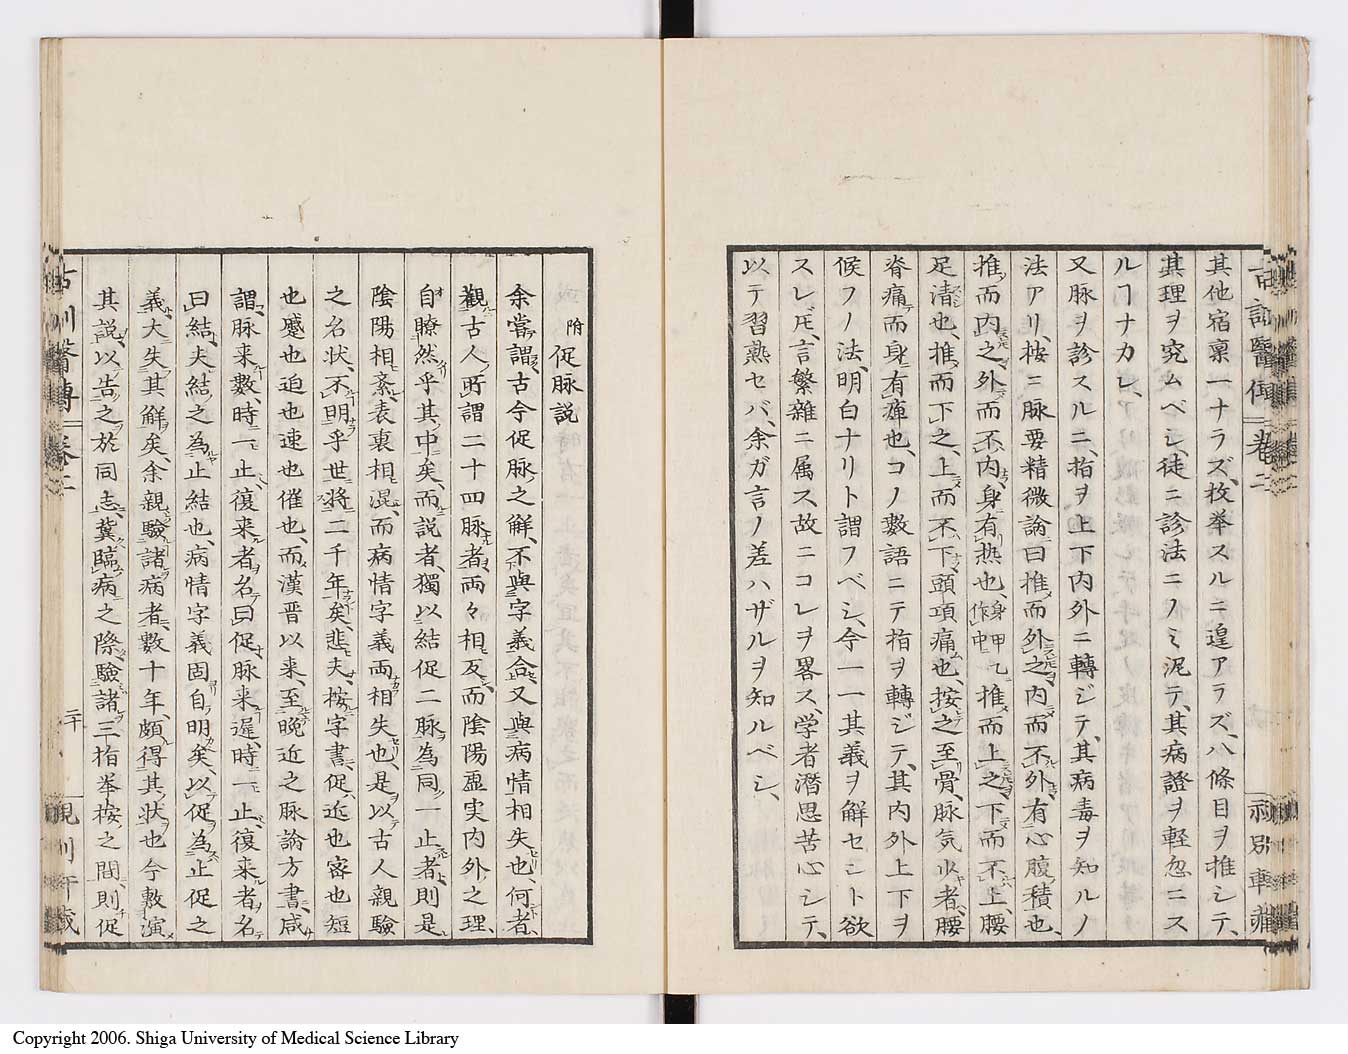 其他宿禀一ナラズ、枚挙スルニ遑アラズ、八條目ヲ推シテ、
其理ヲ究ムベシ、徒ニ診法ニノミ泥テ、其病證ヲ軽忽ニス
ルヿナカレ、
又脉ヲ診スルニ、指ヲ上下内外ニ轉ジテ、其病毒ヲ知ルノ
法アリ、按ニ脉要精微論曰推而外之、内而不外、有心腹積也、
推而内之、外而不内、身有热也、身甲乙作中推而上之、下而不上、腰
足清也、推而下之、上而不下、頭項痛也、按之至骨、脉気少者、腰
脊痛而身有痺也、コノ數語ニテ指ヲ轉ジテ、其内外上下ヲ
候フノ法、明白ナリト謂フベシ、今一一其義ヲ解セント欲
スレ𪜈、言繁雜ニ属ス故ニコレヲ畧ス、学者潛思苦心シテ、
以テ習熟セバ、余ガ言ノ差ハザルヲ知ルベシ、
附促脉説
余嘗謂、古今促脉之解、不與字義合、又與病情相失也、何者、
觀古人所謂二十四脉者、両々相反、而陰陽虚実内外之理、
自瞭然乎其中矣、而説者、獨以結促二脉為同一止者、則是
陰陽相紊、表裏相混、而病情字義両相失也、是以古人親驗
之名状、不明乎世、将二千年矣、悲夫、按字書、促、近也宻也短
也蹙也迫也速也催也、而漢晋以来、至晩近之脉論方書、咸
謂、脉来數、時一止、復来者、名曰促、脉来遅、時一止、復来者、名
曰結、夫結之為止結也、病情字義固自明矣、以促為止促之
義、大失其解矣、余親驗諸病者、數十年、頗得其状也、今敷演
其説、以告之於同志、冀臨病之際、驗諸三指挙按之間、則促
卷二
二十
Copyright 2006. Shiga University of Medical Science Library